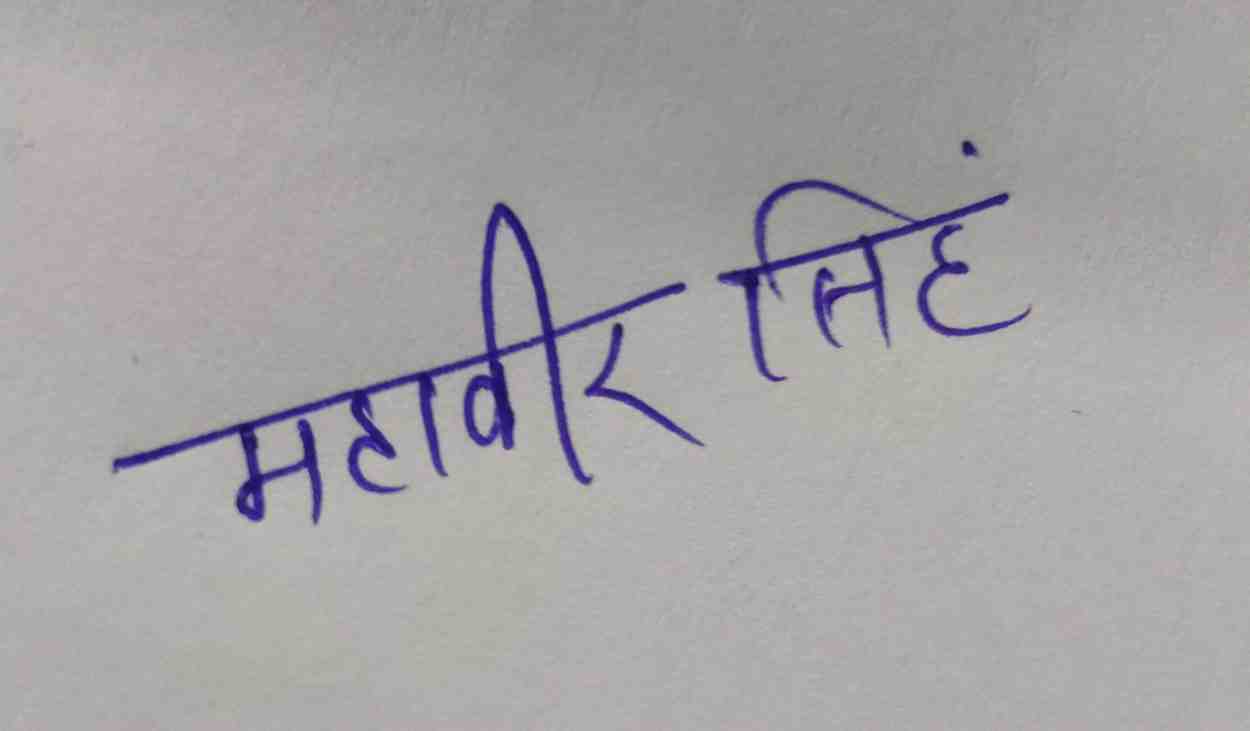 महावीर सिहं